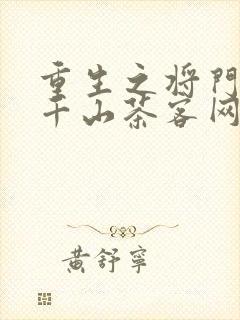 重生之将門
千山茶客网
黃舒寧